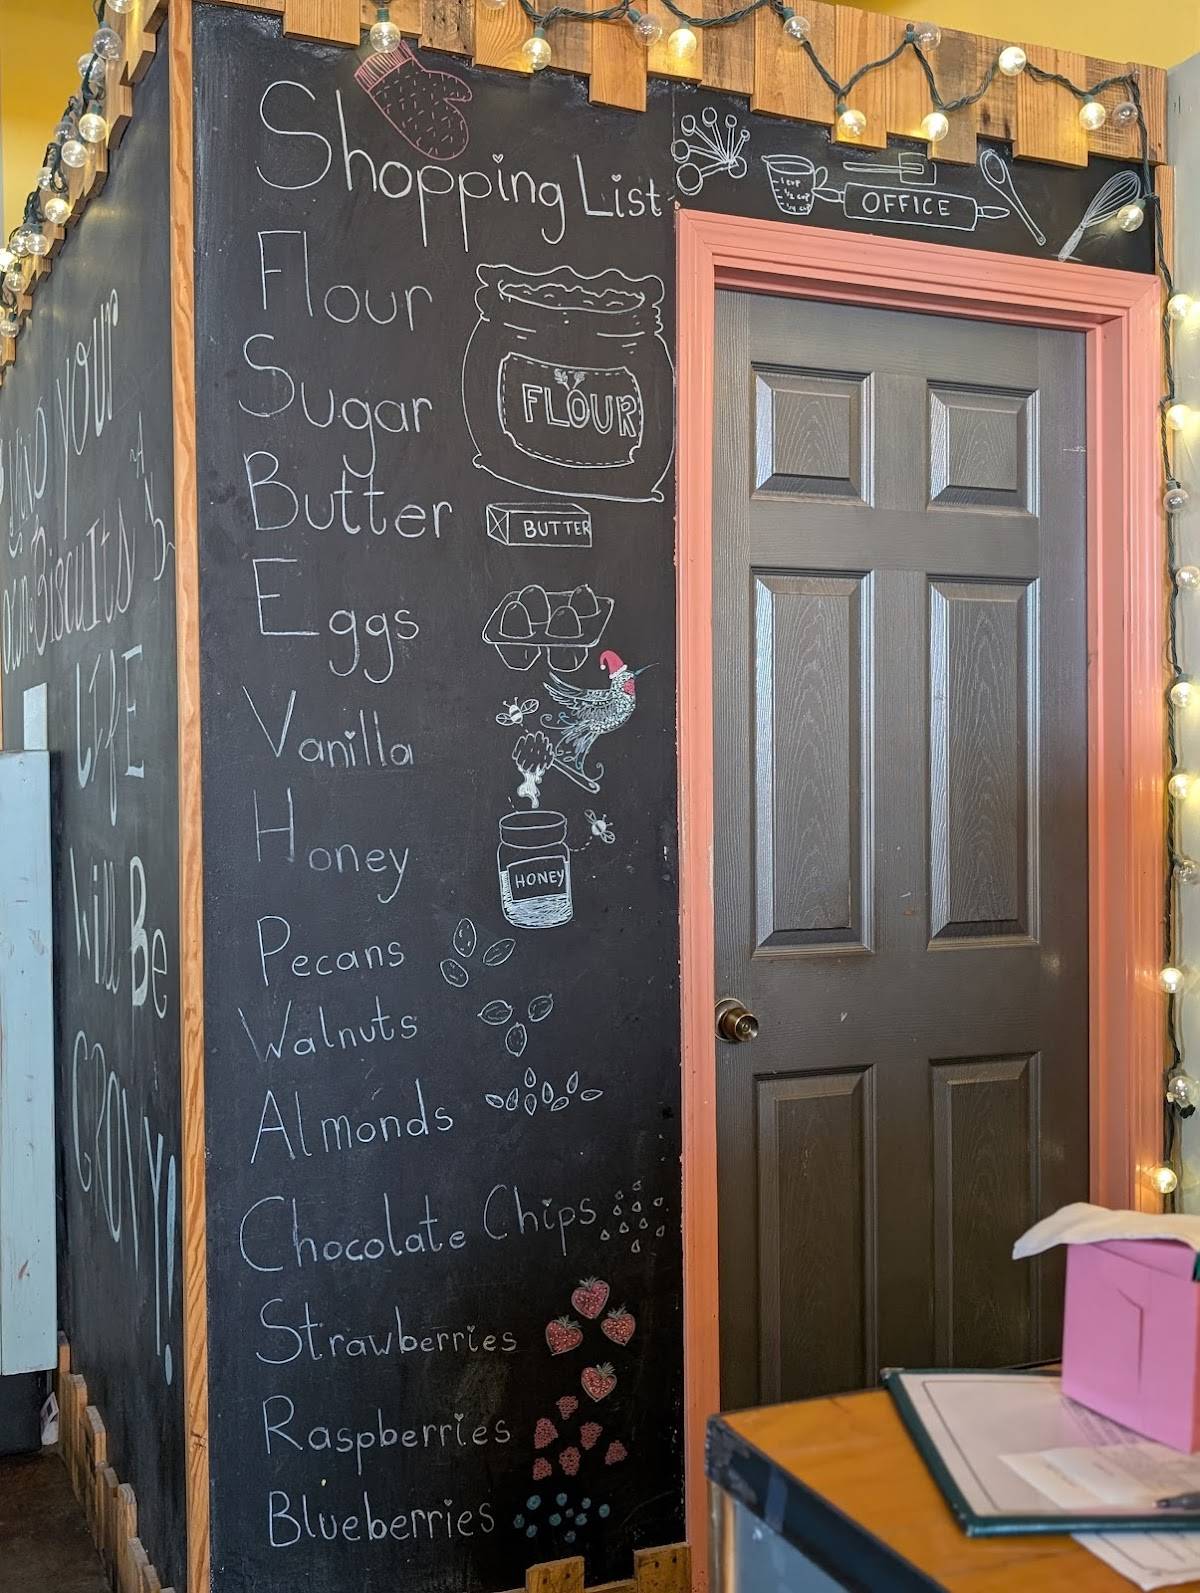 Shopping List
Flour
Sugar
Butter
Eggs
Vanilla
Honey
Pecans
Walnuts
Almonds
Chocolate Chips
Strawberries
Raspberries
Blueberries
FLOUR
BUTTER
HONEY
1 CUP
1/2 CUP
1/4 CUP
OFFICE
your
own Biscuits
LIFE
Will Be
GRAVY!